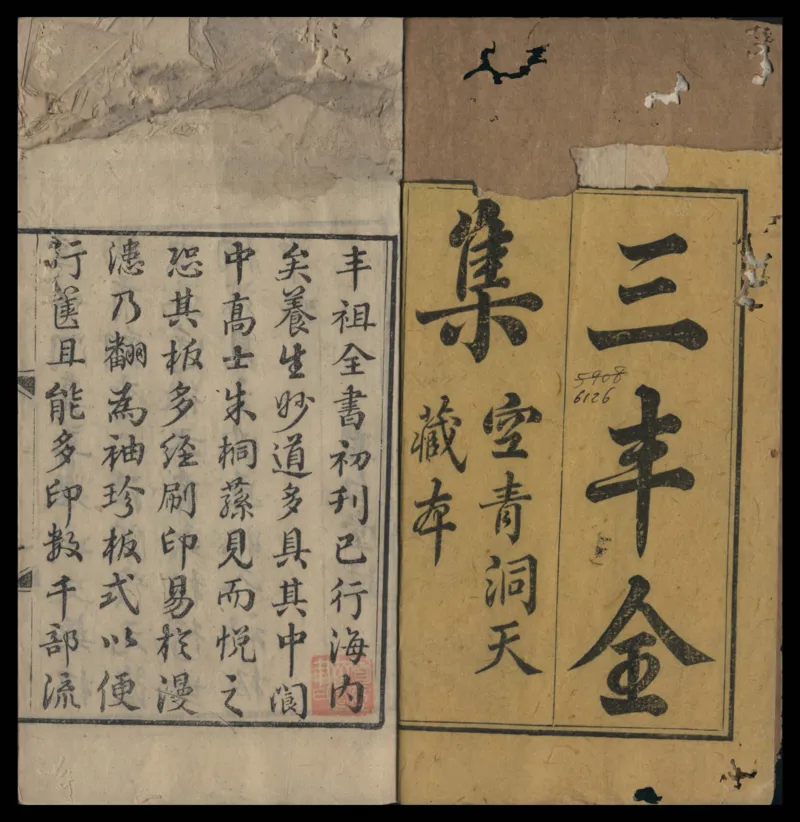 三丰全
集
空青洞天
藏本
5908
6126
丰祖全書初刋已行海内
矣養生妙道多具其中閬
中高士朱桐蓀見而悦之
恐其板多經刷印易於漫
漶乃翻為袖珍板式以便
行篋且能多印數千部流